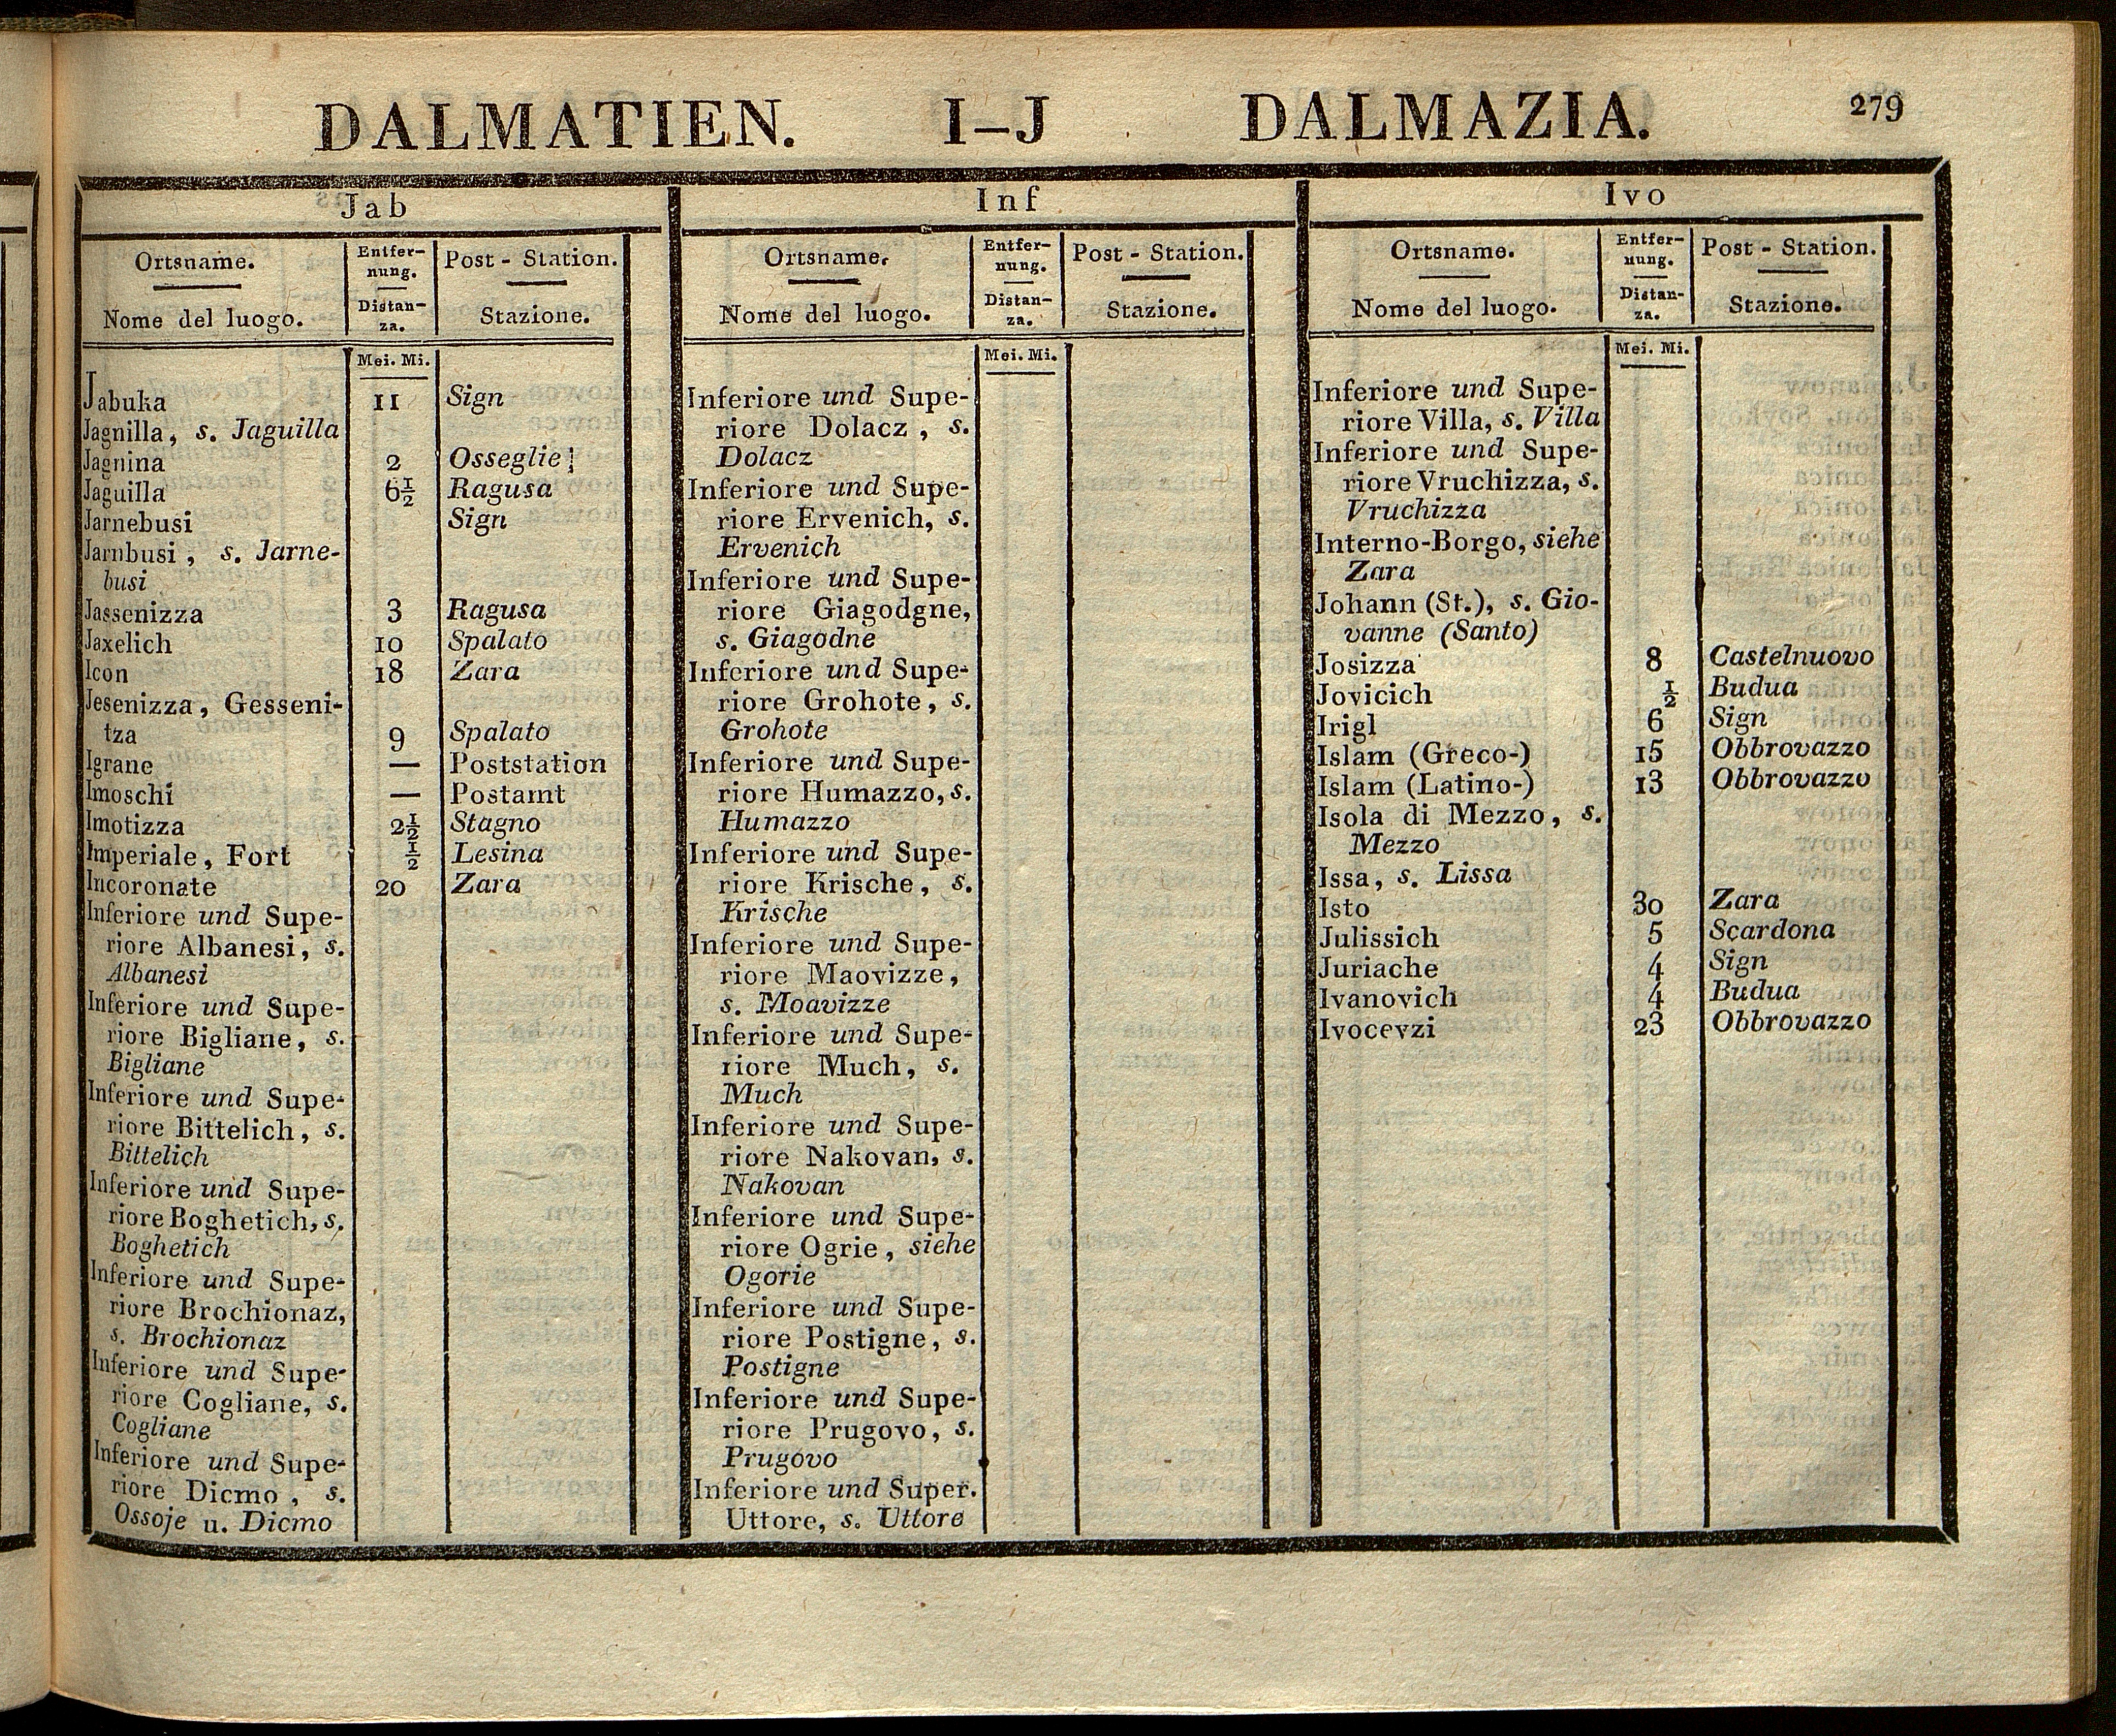 DALMATIEN. I–J DALMAZIA. 279
Jab
Ortsname. Entfer- Post-Station.
nung.
Nome del luogo. Distan- Stazione.
za.
Mei. Mi.
Jabuka 11 Sign
Jagnilla, s. Jaguilla
Jagnina 2 Osseglie
Jaguilla 6½ Ragusa
Jarnebusi Sign
Jarnbusi, s. Jarne-
busi
Jassenizza 3 Ragusa
Jaxelich 10 Spalato
Icon 18 Zara
Jesenizza, Gesseni-
tza 9 Spalato
Igrane — Poststation
Imoschi — Postamt
Imotizza 2½ Stagno
Imperiale, Fort ½ Lesina
Incoronate 20 Zara
Inferiore und Supe-
riore Albanesi, s.
Albanesi
Inferiore und Supe-
riore Bigliane, s.
Bigliane
Inferiore und Supe-
riore Bittelich, s.
Bittelich
Inferiore und Supe-
riore Boghetich, s.
Boghetich
Inferiore und Supe-
riore Brochionaz,
s. Brochionaz
Inferiore und Supe-
riore Cogliane, s.
Cogliane
Inferiore und Supe-
riore Dicmo, s.
Ossoje u. Dicmo
Inf
Ortsname. Entfer- Post-Station.
nung.
Nome del luogo. Distan- Stazione.
za.
Mei. Mi.
Inferiore und Supe-
riore Dolacz, s.
Dolacz
Inferiore und Supe-
riore Ervenich, s.
Ervenich
Inferiore und Supe-
riore Giagodgne,
s. Giagodne
Inferiore und Supe-
riore Grohote, s.
Grohote
Inferiore und Supe-
riore Humazzo, s.
Humazzo
Inferiore und Supe-
riore Krische, s.
Krische
Inferiore und Supe-
riore Maovizze,
s. Moavizze
Inferiore und Supe-
riore Much, s.
Much
Inferiore und Supe-
riore Nakovan, s.
Nakovan
Inferiore und Supe-
riore Ogrie, siehe
Ogorie
Inferiore und Supe-
riore Postigne, s.
Postigne
Inferiore und Supe-
riore Prugovo, s.
Prugovo
Inferiore und Super.
Uttore, s. Uttore
Ivo
Ortsname. Entfer- Post-Station.
nung.
Nome del luogo. Distan- Stazione.
za.
Mei. Mi.
Inferiore und Supe-
riore Villa, s. Villa
Inferiore und Supe-
riore Vruchizza, s.
Vruchizza
Interno-Borgo, siehe
Zara
Johann (St.), s. Gio-
vanne (Santo)
Josizza 8 Castelnuovo
Jovicich ½ Budua
Irigl 6 Sign
Islam (Greco-) 15 Obbrovazzo
Islam (Latino-) 13 Obbrovazzo
Isola di Mezzo, s.
Mezzo
Issa, s. Lissa
Isto 30 Zara
Julissich 5 Scardona
Juriache 4 Sign
Ivanovich 4 Budua
Ivocevzi 23 Obbrovazzo